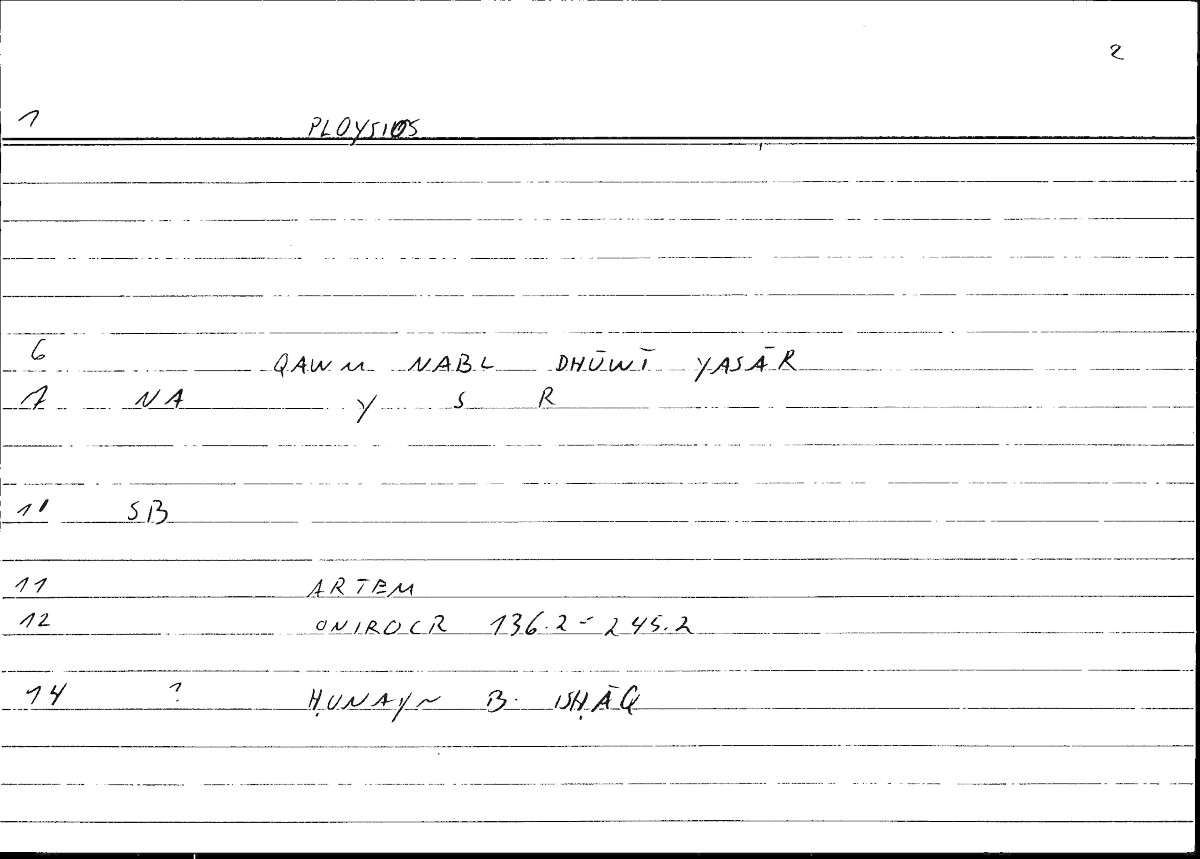 2
1 PLOYSIOS
6 QAWM NABL DHŪWĪ YASĀR
7 NA Y S R
10 SB
11 ARTEM
12 ONIROCR 136.2-245.2
14 ? ḤUNAYN B. ISḤĀQ